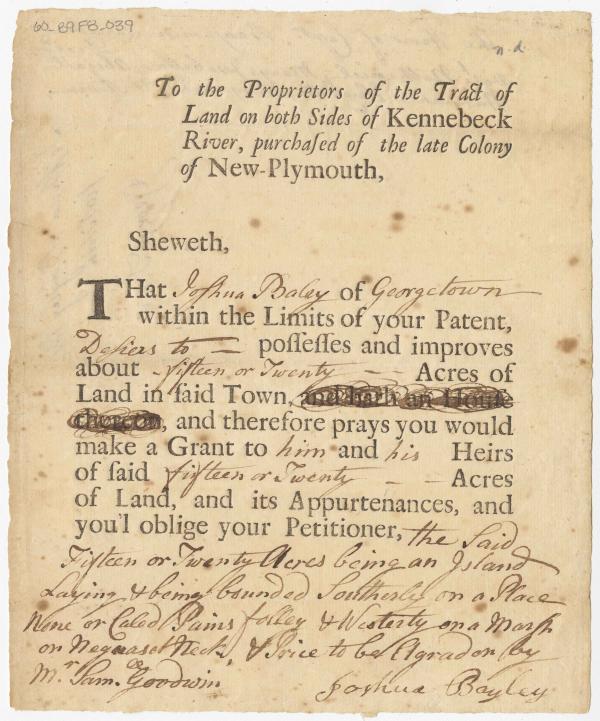 60_B9F8_039
n.d.
To the Proprietors of the Tract of
Land on both Sides of Kennebeck
River, purchaſed of the late Colony
of New-Plymouth,
Sheweth,
THat Joshua Baley of Georgetown
within the Limits of your Patent,
Desiers to — poſſeſſes and improves
about fifteen or Twenty — — Acres of
Land in ſaid Town, and hath an Houſe
thereon, and therefore prays you would
make a Grant to him and his Heirs
of ſaid fifteen or Twenty — — Acres
of Land, and its Appurtenances, and
you'l oblige your Petitioner, the Said
Fifteen or Twenty Acres being an Island
Laying & being bounded Southerly on a Place
None or Caled Pains folley & Westerly on a Marsh
on Neguaset Neck, & Price to be Agradon by
Mr. Saml. Goodwin
Joshua Bayley